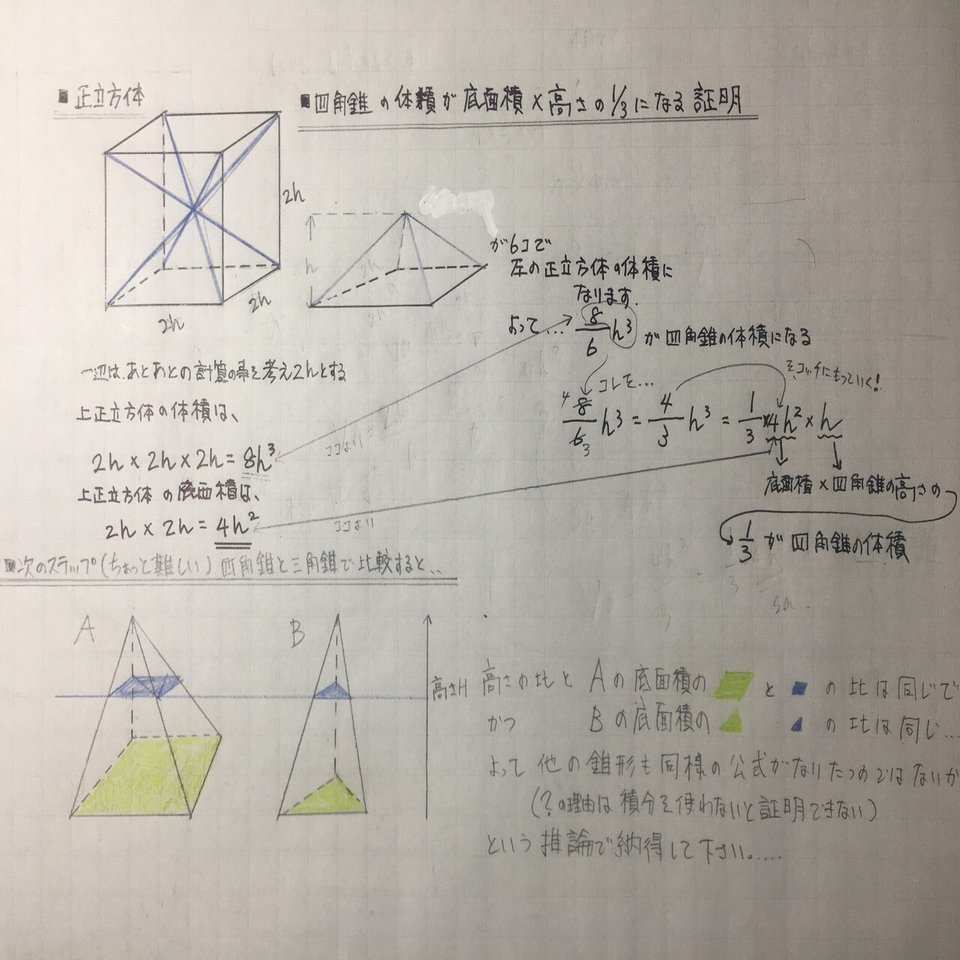 ■ 正立方体
■四角錐の体積が底面積×高さの1/3になる証明
2h
2h
2h
h
2h
2h
が6コで
左の正立方体の体積に
なります.
よって... 8/6 h³ が四角錐の体積になる
コレを...
そ、コッチにもっていく!
4 8/6 3 h³ = 4/3 h³ = 1/3 × 4h² × h
底面積×四角錐の高さの
1/3 が四角錐の体積
一辺は、あとあとの計算の事を考え2hとする
上正立方体の体積は、
2h × 2h × 2h = 8h³
ココより
上正立方体の底面積は、
2h × 2h = 4h²
ココより
■次のステップ(ちょっと難しい) 四角錐と三角錐で比較すると...
A
B
高さH
高さの比と Aの底面積の と の比は同じで
かつ Bの底面積の の比は同じ...
よって他の錐形も同様の公式がなりたつのではないか
(?の理由は積分を使わないと証明できない)
という推論で納得して下さい。....